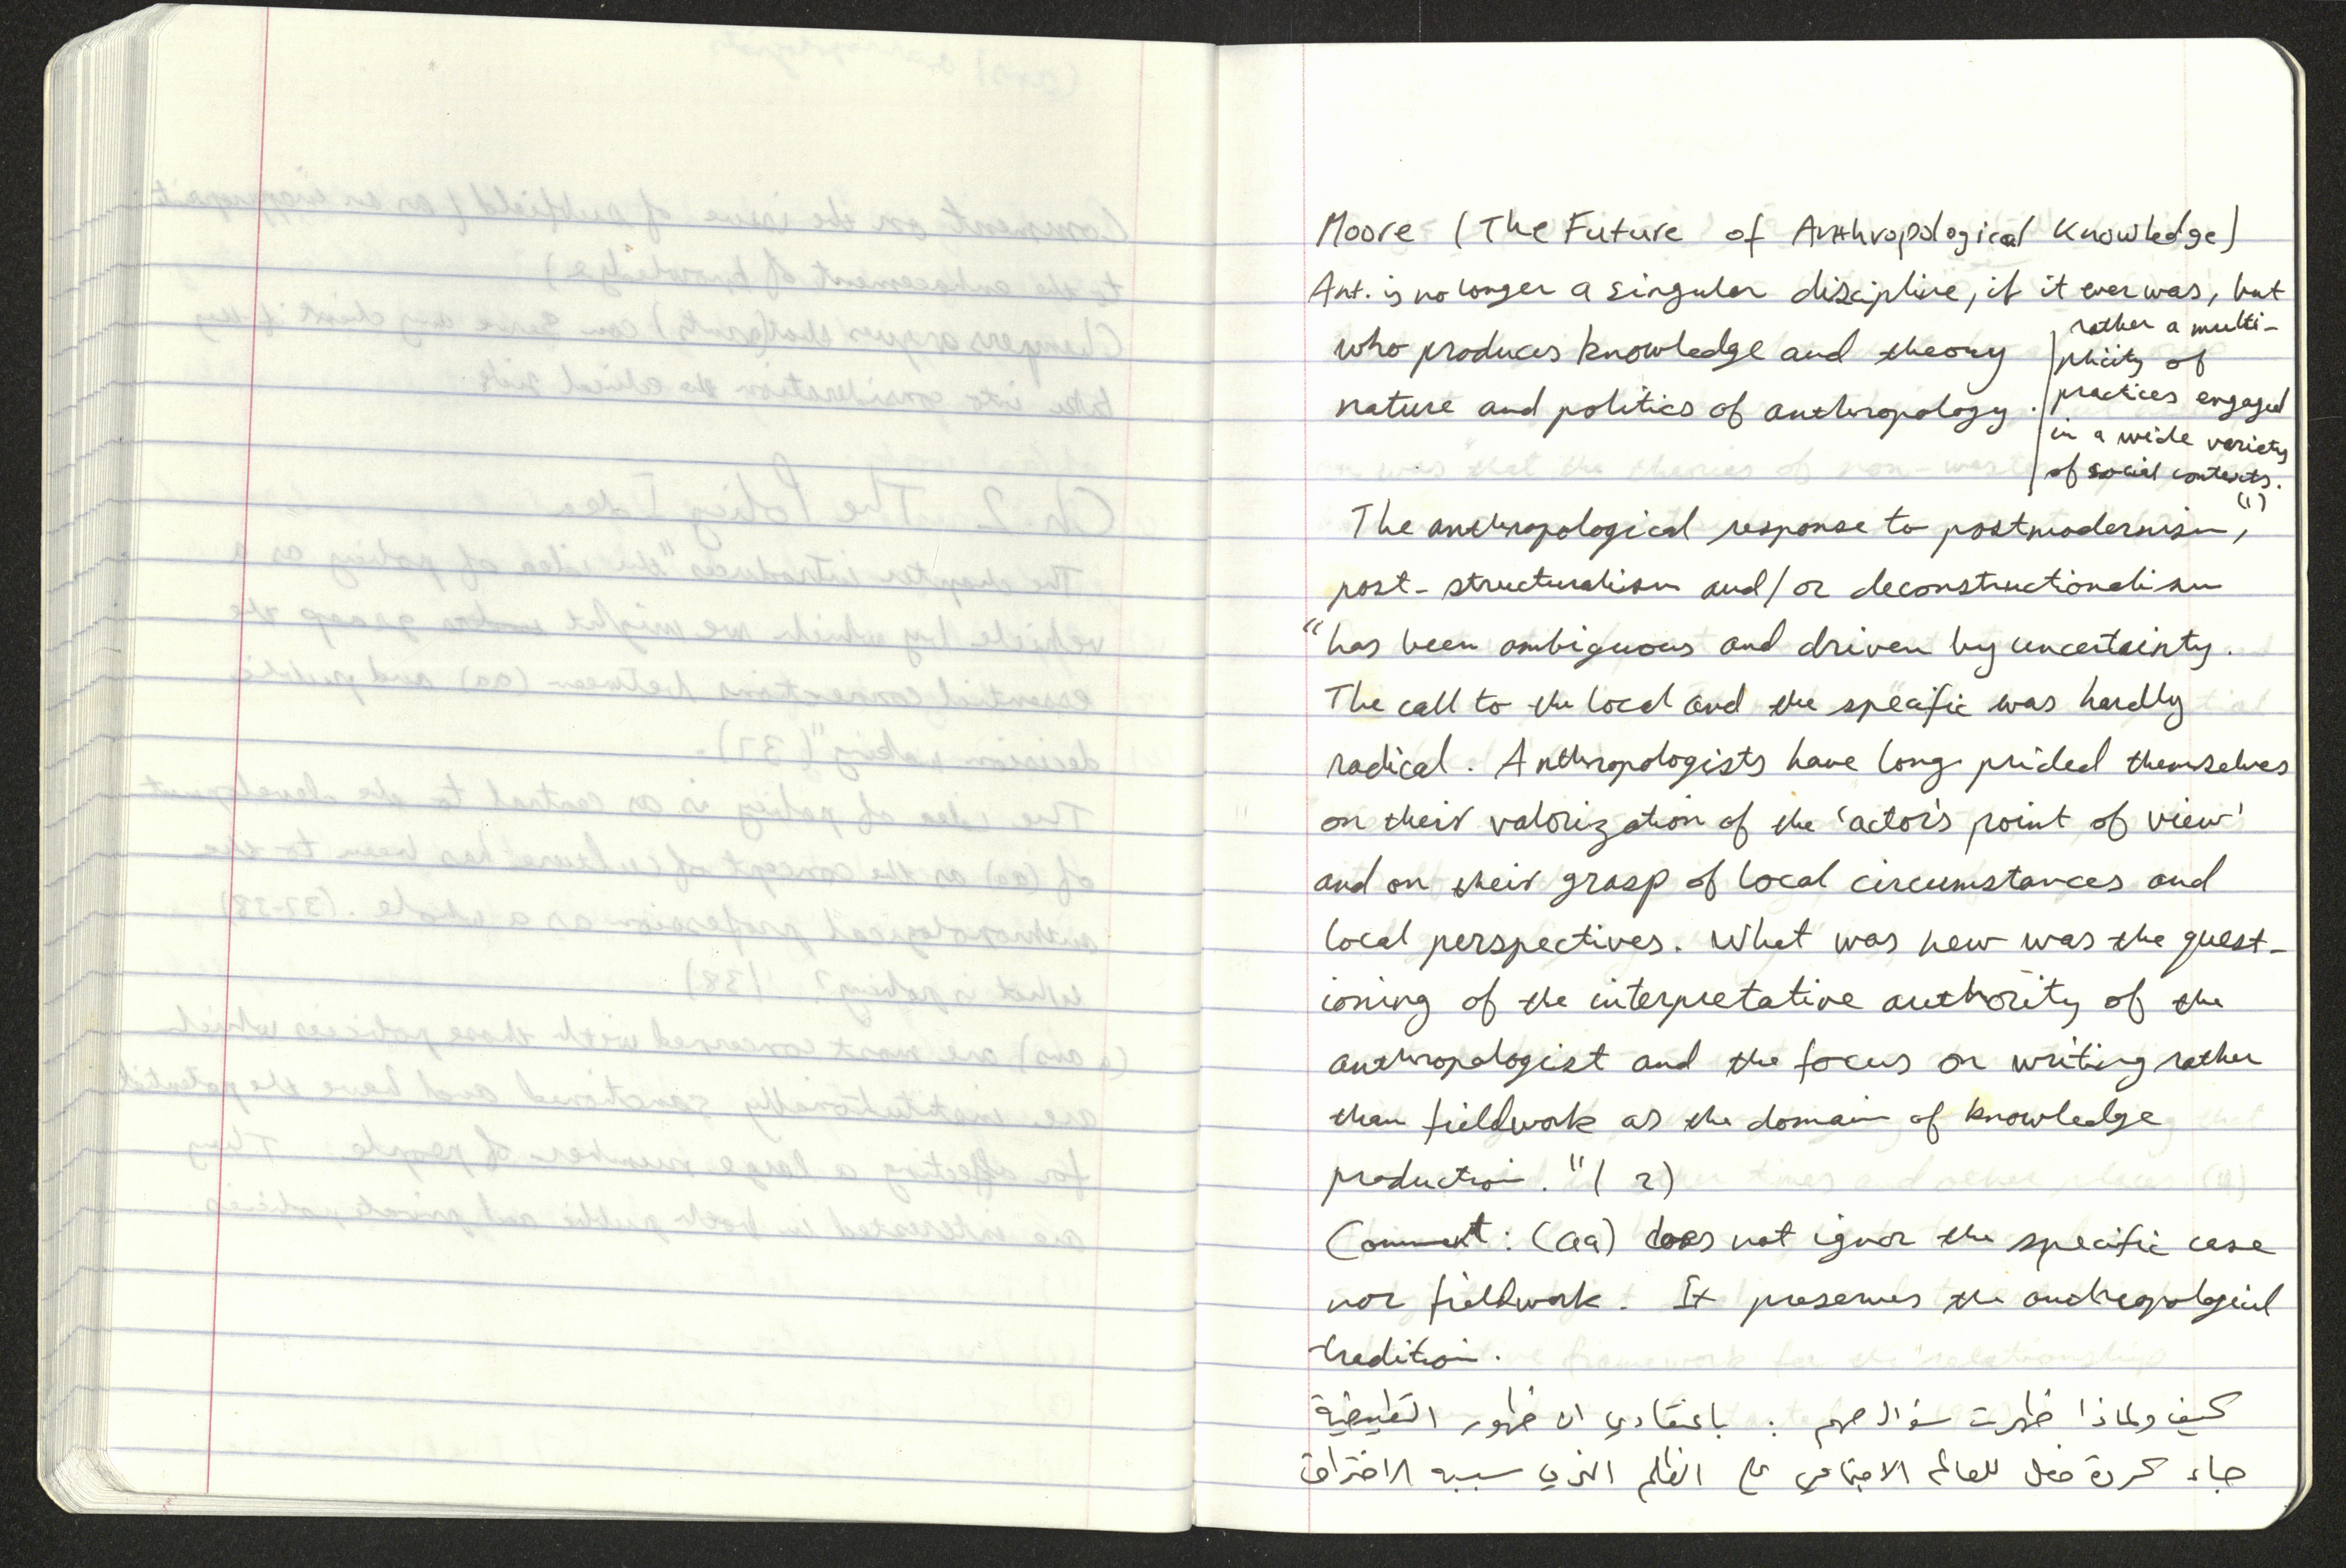 Moore (The Future of Anthropological Knowledge)
Ant. is no longer a singular discipline, if it ever was, but
rather a multi-
plicity of
practices engaged
in a wide variety
of social contexts.
(1)
who produces knowledge and theory
nature and politics of anthropology.
The anthropological response to postmodernism,
post-structuralism and/or deconstructionalism
"has been ambiguous and driven by uncertainty.
The call to the local and the specific was hardly
radical. Anthropologists have long prided themselves
on their valorization of the 'actor's point of view'
and on their grasp of local circumstances and
local perspectives. What was new was the quest-
ioning of the interpretative authority of the
anthropologist and the focus on writing rather
than fieldwork as the domain of knowledge
production." (2)
Comment: (aa) does not ignor the specific case
nor fieldwork. It preserves the anthropological
tradition.
كيف ولماذا ظهرت سؤال مهم : باعتقادي ان ظهور التطبيقية
جاء كردة فعل للعالم الاجتماعي على الظلم الذي سببه